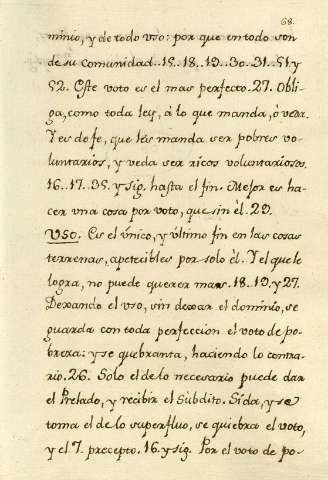 68.
minio, y de todo vso: por que en todo son
de su comunidad..15..18..19..30..31..51 y
52. Este voto es el mas perfecto. 27. Obli-
ga, como toda ley, â lo que manda, ò veda.
Y es de fe, que les manda ser pobres vo-
luntarios, y veda ser ricos voluntariosos.
16..17..35. y sig. hasta el fin. Mejor es ha-
cer vna cosa por voto, que sin èl. 29.
VSO. Es el único, y último fin en las cosas
terrenas, apetecibles por solo èl. Y el que le
logra, no puede querer mas. 18..19. y 27.
Dexando el vso, sin dexar el dominio, se
guarda con toda perfeccion el voto de po-
breza: y se quebranta, haciendo lo contra-
rio. 26. Solo el de lo necesario puede dar
el Prelado, y recibir el Subdito. Si da, y se
toma el de lo superfluo, se quiebra el voto,
y el 7. precepto. 16. y sig. Por el voto de po-